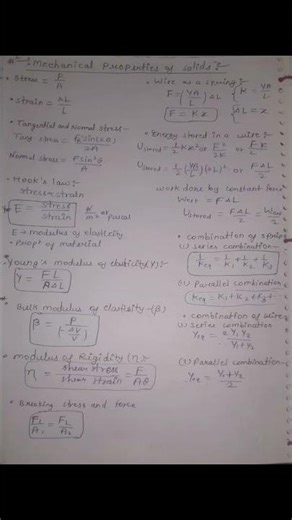 Mechanical Properties of solids:-
• Stress = F/A
• strain = ΔL/L
• Tangential and Normal stress:-
Tang. stress = F sin(2θ)/2A
Normal stress = F sin²θ/A
• Hook's law:-
stress ∝ strain
E = stress/strain N/m² or pascal
E → modulus of elasticity
• Prop. of material
• Young's modulus of elasticity (Y)
Y = FL/AΔL
• Bulk modulus of elasticity - (β)
β = P/(-ΔV/V)
• modulus of Rigidity (η):-
η = shear stress/shear strain = F/Aθ
• Breaking stress and force
F₁/A₁ = F₂/A₂
• Wire as a spring:-
F = (YA/L) ΔL { K = YA/L
F = Kx { ΔL = x
• Energy stored in a wire:-
Ustored = 1/2 Kx² or F²/2K
Ustored = 1/2 (YA/L)(ΔL)² or FΔL/2
work done by constant force
Wext = FΔL
Ustored = FΔL/2 = Wext/2
• combination of spring
(i) series combination-
1/Keq = 1/K₁ + 1/K₂ + 1/K₃
(ii) Parallel combination
Keq = K₁ + K₂ + K₃
• combination of wire
(i) Series combination
Yeq = 2Y₁Y₂/Y₁+Y₂
Parallel combination
Yeq = Y₁+Y₂/2